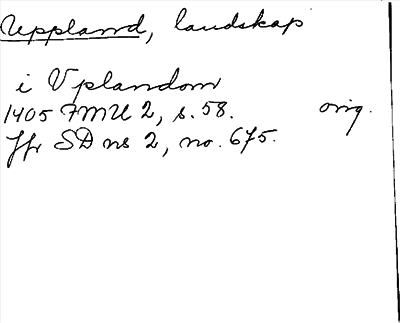 Uppland, landskap
i Vplandom
1405 FMU 2, s. 58. orig.
Jfr SD ns 2, no. 675.